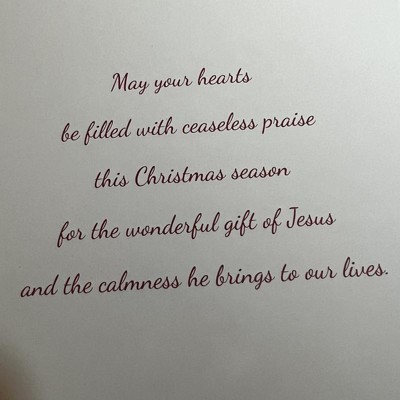 May your hearts
be filled with ceaseless praise
this Christmas season
for the wonderful gift of Jesus
and the calmness he brings to our lives.